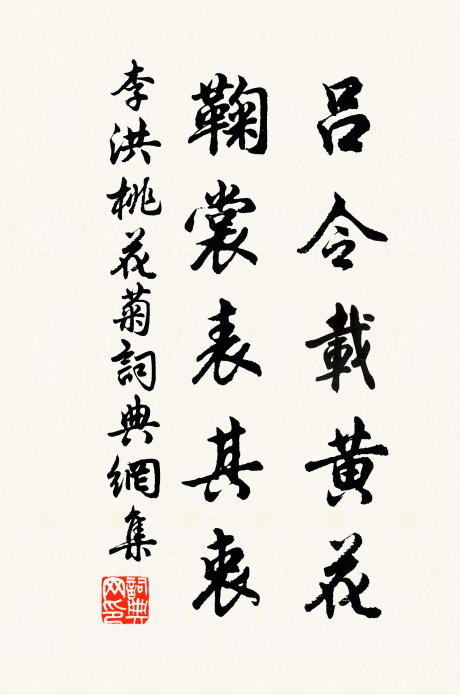 呂令載黄花
鞠裳表其衷
李洪桃花菊詞典網集
詞典网印